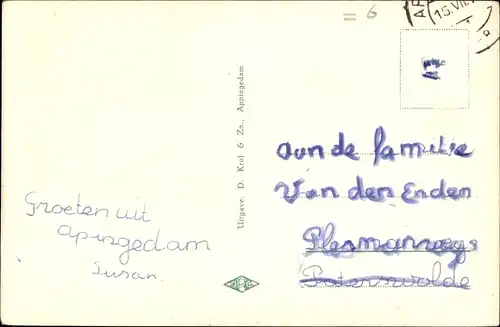 = 6
15.VII.
Groeten uit
Apingedam
Susan.
Uitgave: D. Krol & Zn., Appingedam
aan de familie
Van den Enden
Paterswolde